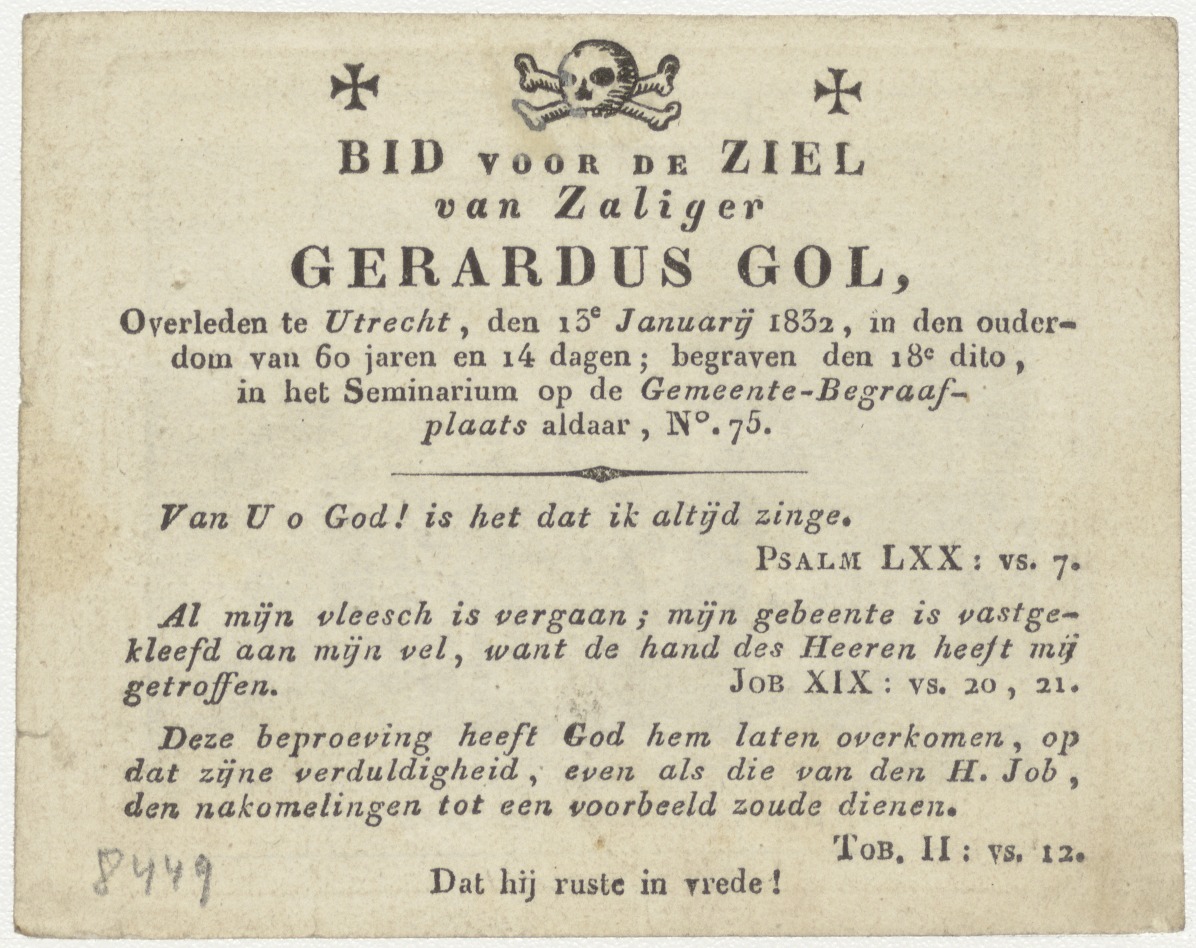 BID VOOR DE ZIEL
van Zaliger
GERARDUS GOL,
Overleden te Utrecht, den 13e Januarij 1832, in den ouder-
dom van 60 jaren en 14 dagen; begraven den 18e dito,
in het Seminarium op de Gemeente-Begraaf-
plaats aldaar, No. 75.
Van U o God! is het dat ik altijd zinge.
PSALM LXX: vs. 7.
Al mijn vleesch is vergaan; mijn gebeente is vastge-
kleefd aan mijn vel, want de hand des Heeren heeft mij
getroffen. JOB XIX: vs. 20, 21.
Deze beproeving heeft God hem laten overkomen, op
dat zijne verduldigheid, even als die van den H. Job,
den nakomelingen tot een voorbeeld zoude dienen.
TOB. II: vs. 12.
Dat hij ruste in vrede!
8449